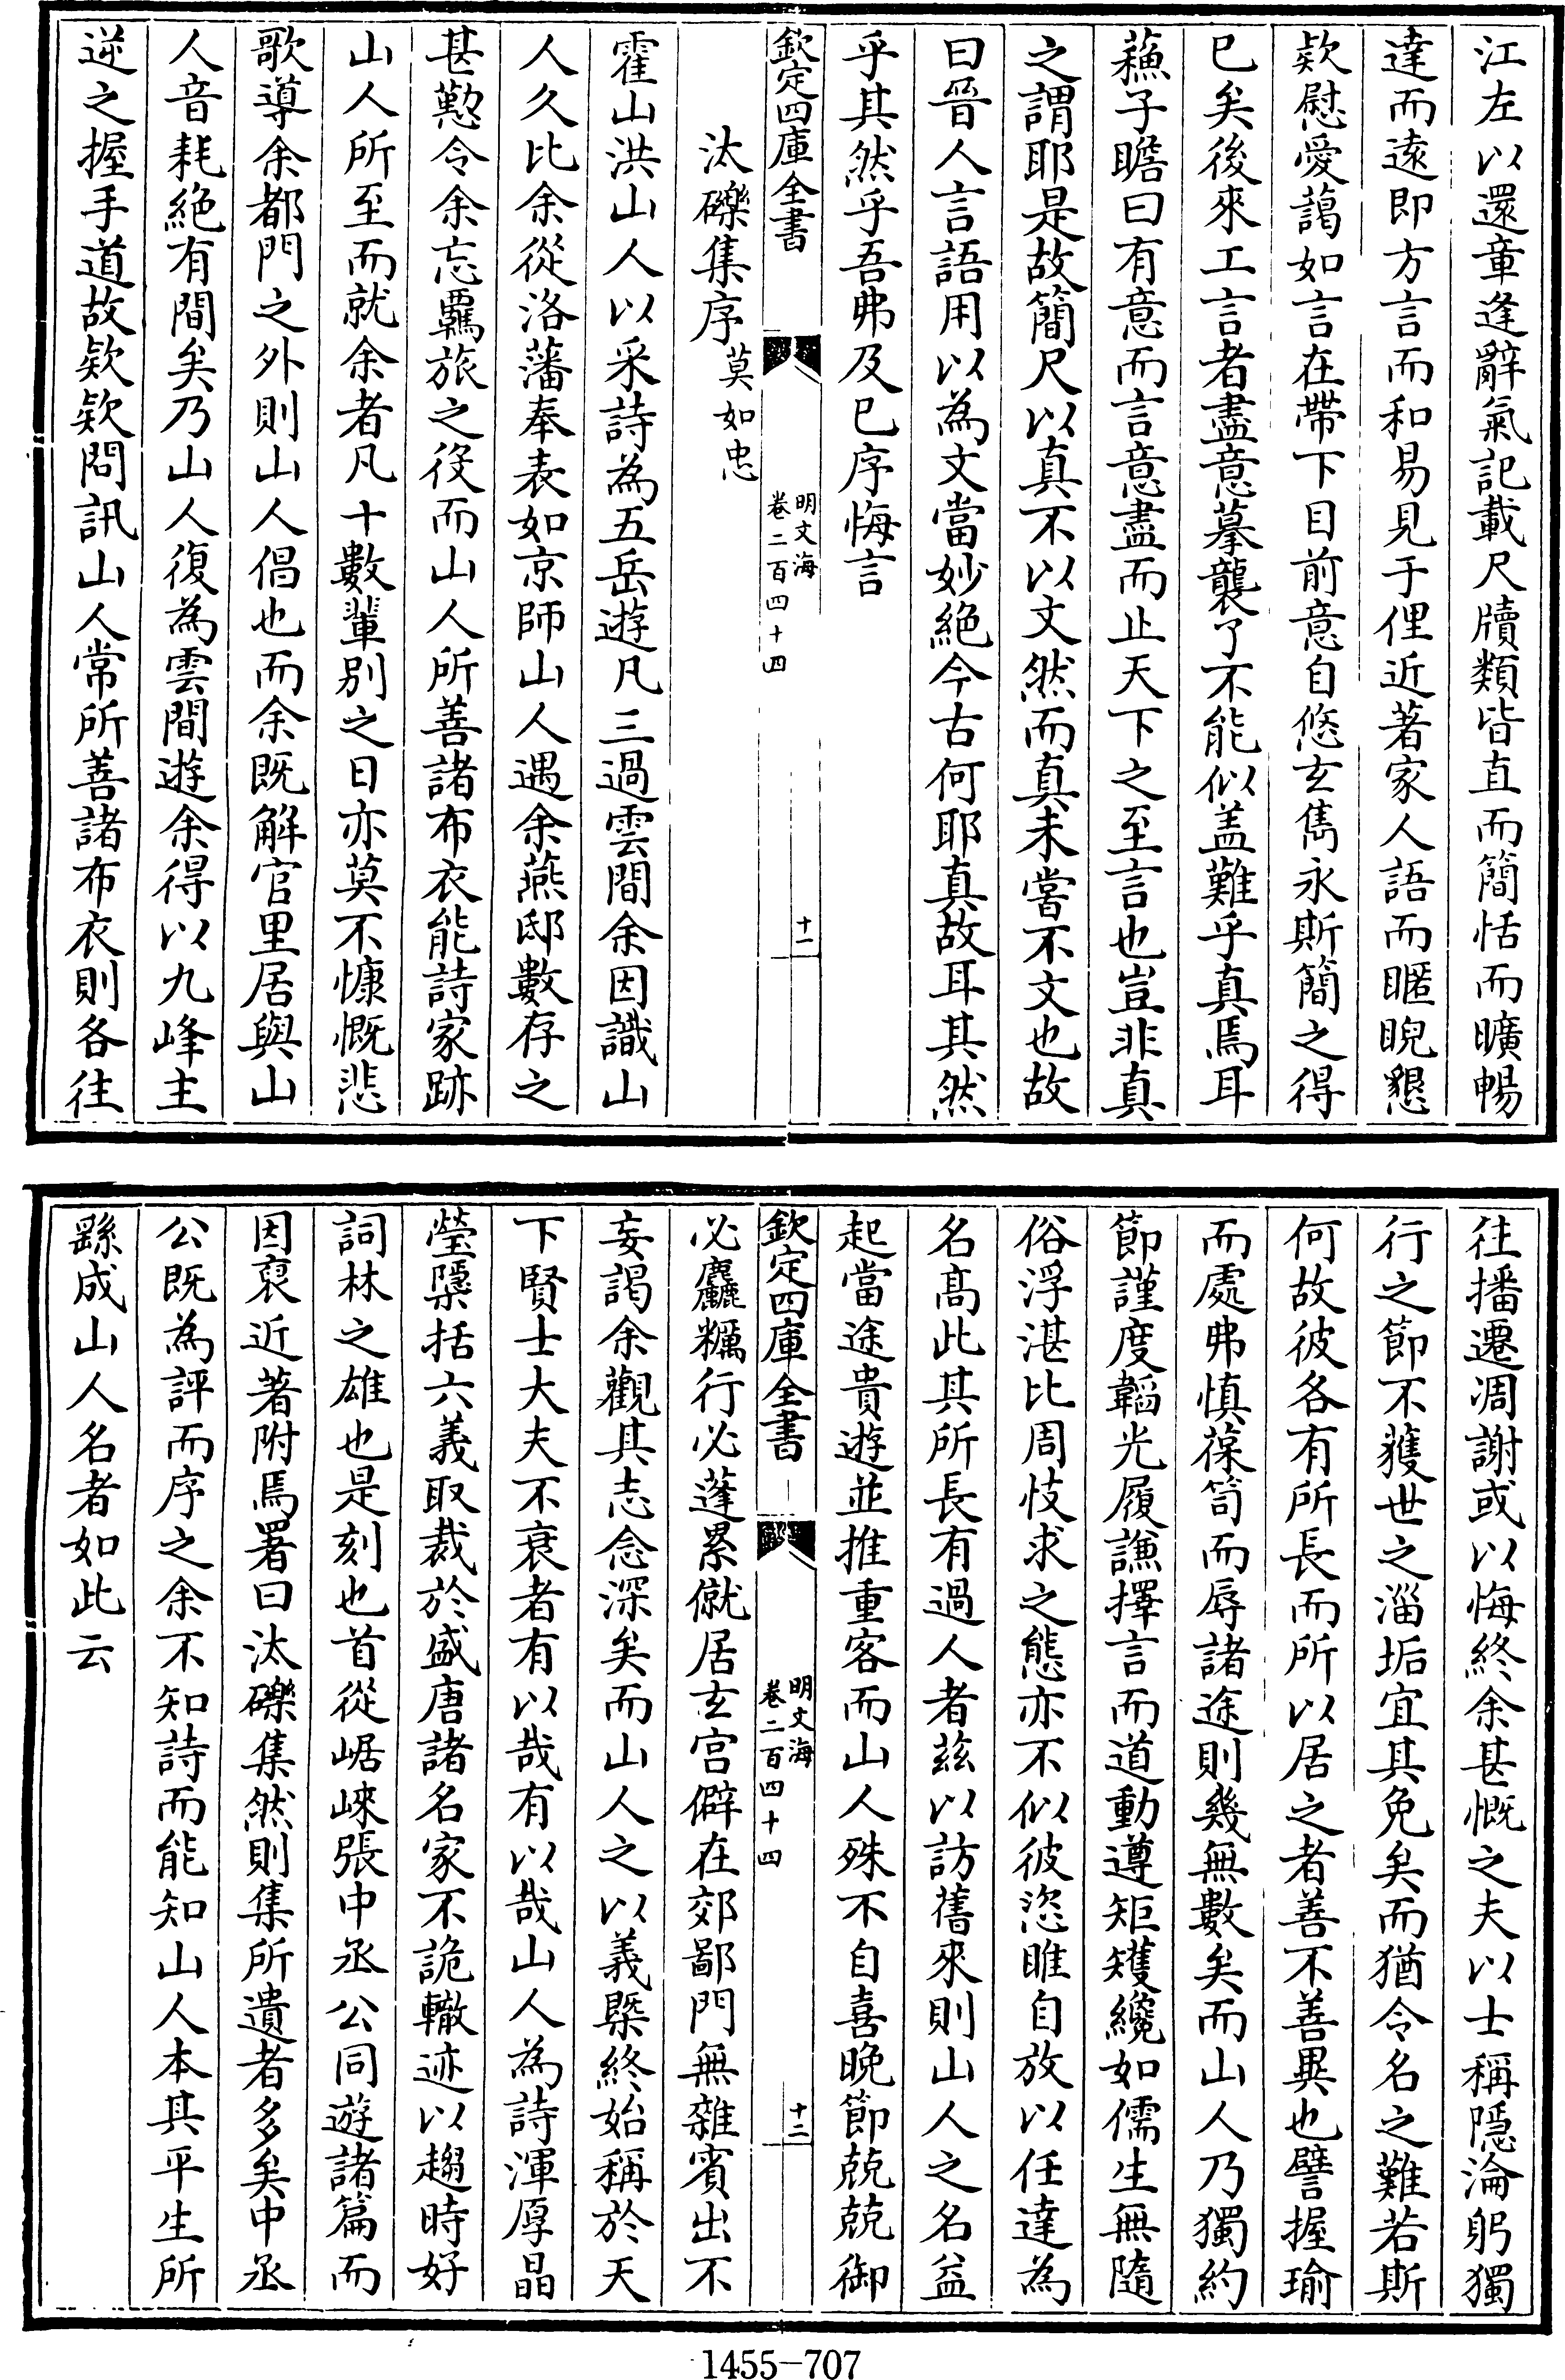 江左以還童逢辭氣記載尺牘類皆直而簡恬而曠暢
達而遠即方言而和易見于俚近著家人語而暱睨懇
款慰愛藹如言在帶下目前意自悠玄雋永斯簡之得
已矣後來工言者盡意摹襲了不能似盖難乎真焉耳
蘓子瞻曰有意而言意盡而止天下之至言也豈非真
之謂耶是故簡尺以真不以文然而真未嘗不文也故
曰晉人言語用以為文當妙絶今古何耶真故耳其然
乎其然乎吾弗及已序悔言
欽定四庫全書
明文海
卷二百四十四
十一
汰礫集序莫如忠
霍山洪山人以采詩為五岳遊凡三過雲間余因識山
人久比余從洛藩奉表如京師山人遇余燕邸數存之
甚懃令余忘羈旅之役而山人所善諸布衣能詩家跡
山人所至而就余者凡十數輩別之日亦莫不慷慨悲
歌導余都門之外則山人倡也而余既解官里居與山
人音耗絶有間矣乃山人復為雲間遊余得以九峰主
逆之握手道故欵欵問訊山人常所善諸布衣則各往
往播遷凋謝或以悔終余甚慨之夫以士稱隱淪躬獨
行之節不獲世之淄垢宜其免矣而猶令名之難若斯
何故彼各有所長而所以居之者善不善異也譬握瑜
而處弗慎葆笥而辱諸途則幾無數矣而山人乃獨約
節謹度韜光履謙擇言而道動遵矩矱纔如儒生無隨
俗浮湛比周忮求之態亦不似彼恣睢自放以任達為
名髙此其所長有過人者茲以訪舊來則山人之名益
起當途貴遊並推重客而山人殊不自喜晚節兢兢御
欽定四庫全書
明文海
卷二百四十四
十二
必麤糲行必蓬累僦居玄宫僻在郊鄙門無雜賓出不
妄謁余觀其志念深矣而山人之以義槩終始稱於天
下賢士大夫不衰者有以哉有以哉山人為詩渾厚晶
瑩隱括六義取裁於盛唐諸名家不詭轍迹以趨時好
詞林之雄也是刻也首從崌崍張中丞公同遊諸篇而
因裒近著附焉署曰汰礫集然則集所遺者多矣中丞
公既為評而序之余不知詩而能知山人本其平生所
繇成山人名者如此云
1455-707